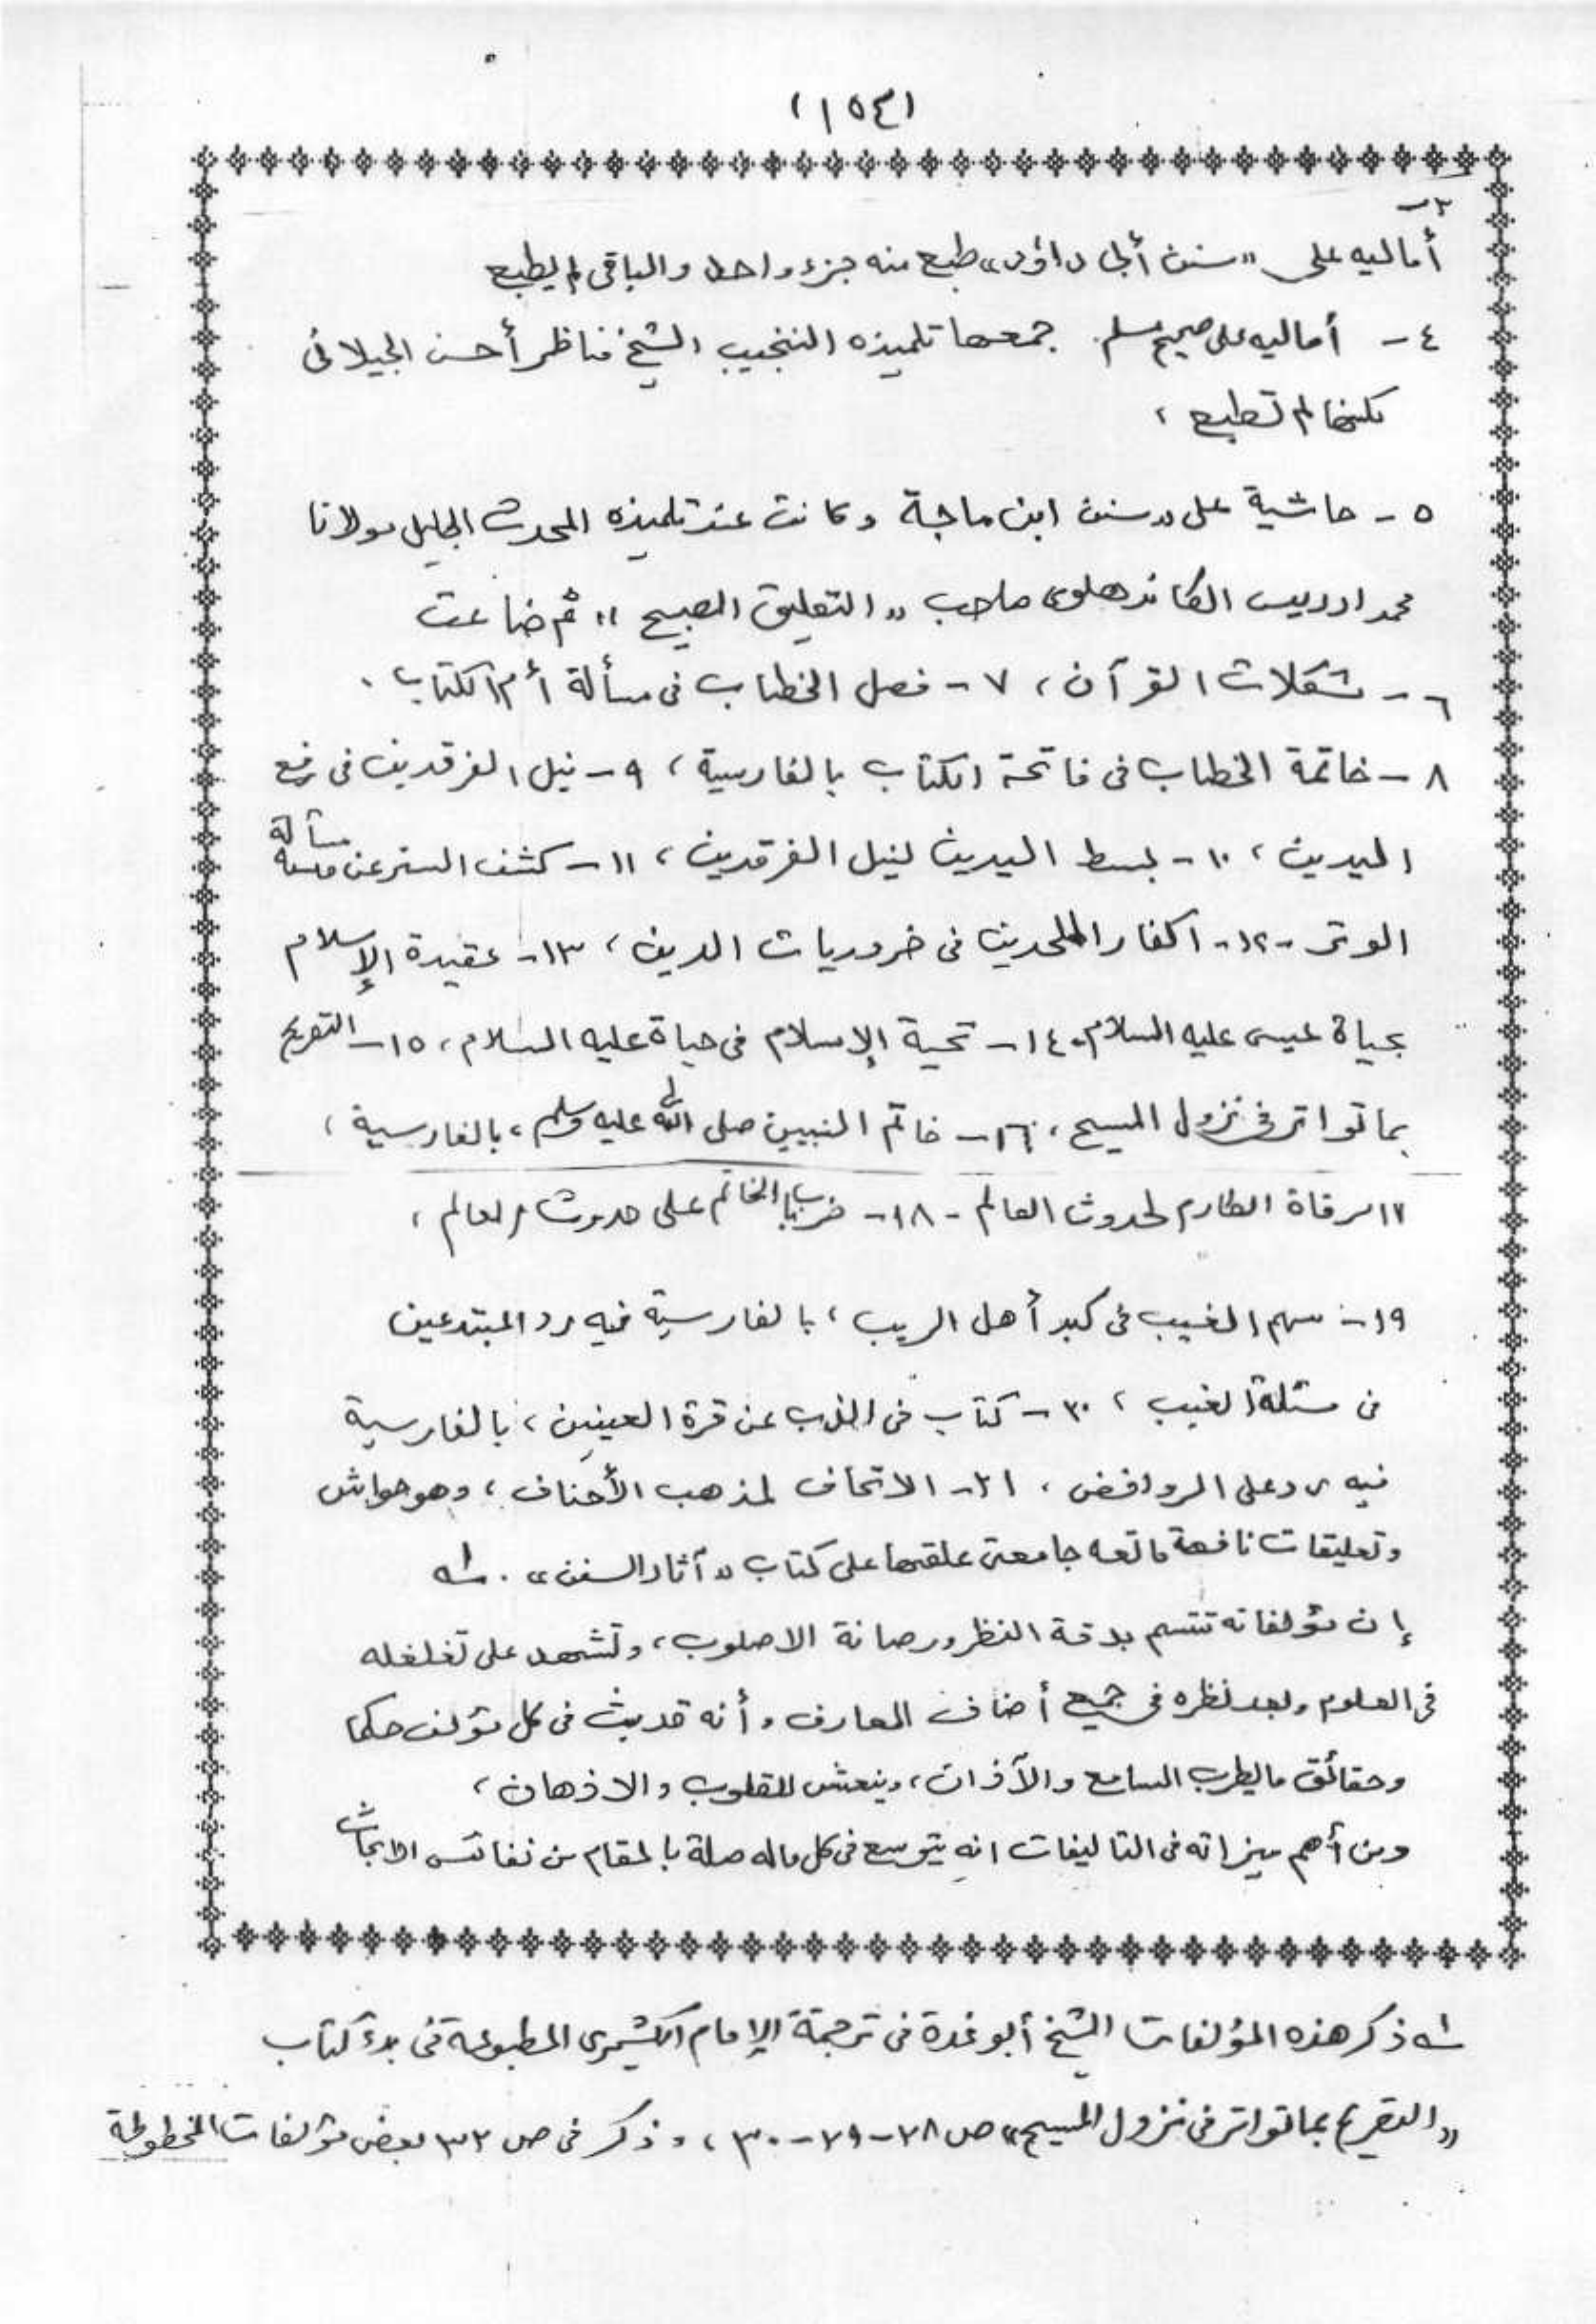 (١٥٤)
٣-
أماليه على "سنن أبي داؤد" طبع منه جزء واحد والباقي لم يطبع
٤ - أماليه على صحيح مسلم. جمعها تلميذه النجيب الشيخ مناظر أحسن الجيلاني
لكنها لم تطبع ،
٥ - حاشية على "سنن ابن ماجة وكانت عند تلميذه المحدث الجليل مولانا
محمد ادريس الكاندهلوى صاحب "التعليق الصبيح" ثم ضاعت
٦ - مشكلات القرآن ، ٧ - فصل الخطاب في مسألة أم الكتاب .
٨ - خاتمة الخطاب في فاتحة الكتاب بالفارسية ، ٩ - نيل الفرقدين في رفع
اليدين ، ١٠ - بسط اليدين لنيل الفرقدين ، ١١ - كشف الستر عن مسألة
الوتر - ١٢ - اكفار الملحدين في ضروريات الدين ، ١٣ - عقيدة الإسلام
بحياة عيسى عليه السلام . ١٤ - تحية الإسلام في حياة عليه السلام ، ١٥ - التصريح
بما تواتر في نزول المسيح ، ١٦ - خاتم النبيين صلى الله عليه وسلم ، بالفارسية ،
١٧ مرقاة الطارم لحدوث العالم - ١٨ - ضرب الخاتم على حدوث العالم ،
١٩ - سهم الغيب في كبد أهل الريب ، بالفارسية فيه رد المبتدعين
في مسئلة الغيب ، ٢٠ - كتاب في الذب عن قرة العينين ، بالفارسية
فيه رد على الروافض ، ٢١ - الاتحاف لمذهب الأحناف ، وهو حواش
وتعليقات نافعة ماتعه جامعة علقها على كتاب "آثار السنن" . ١ـه
إن مؤلفاته تتسم بدقة النظر ورصانة الاصلوب ، وتشهد على تغلغله
في العلوم وبعد نظره في جميع أضاف المعارف وأنه قد بث في كل مؤلف حكما
وحقائق ما يطرب السامع والآذان ، وينعش القلوب والاذهان ،
ومن أهم ميزاته في التاليفات انه يتوسع في كل ماله صلة بالمقام من نفائس الابحاث
١ـه ذكر هذه المؤلفات الشيخ أبو غدة في ترجمة الإمام الكشميري المطبوعة في بدء كتاب
"التصريح بما تواتر في نزول المسيح" ص ٢٨ - ٢٩ - ٣٠ ، وذكر في ص ٣٢ بعض مؤلفات المخطوطة